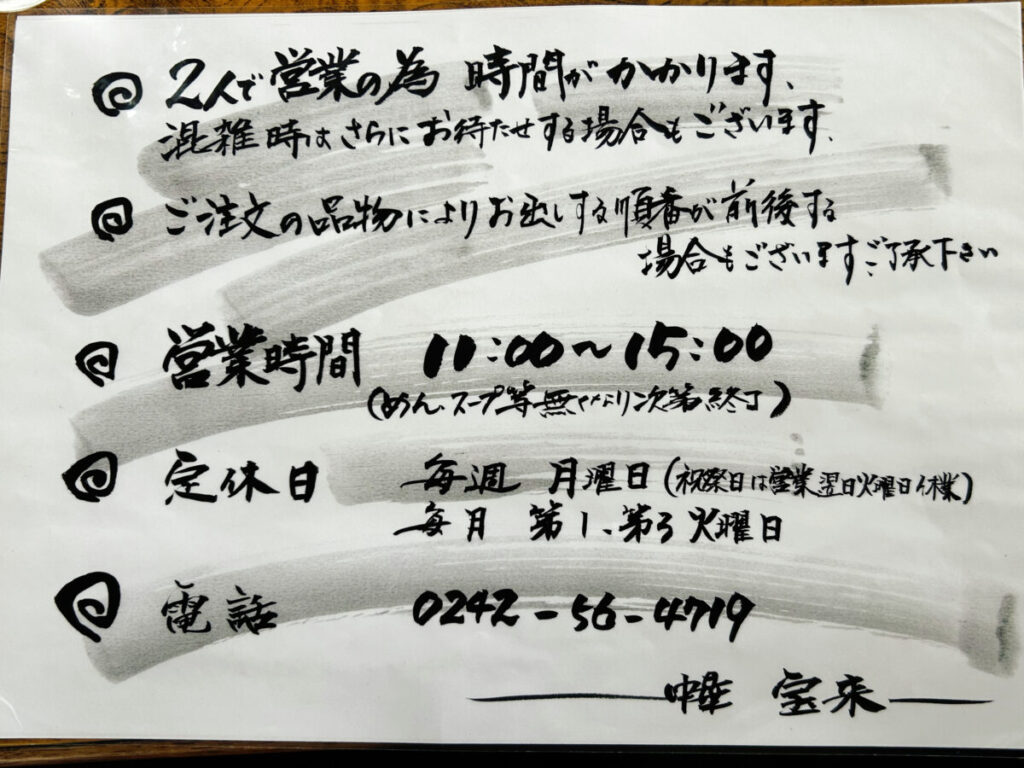 2人で営業の為 時間がかかります、
混雑時はさらにお待たせする場合もございます。
ご注文の品物によりお出しする順番が前後する
場合もございますご了承下さい
営業時間 11:00～15:00
(めん、スープ等無くなり次第終了)
定休日 毎週 月曜日(祝祭日は営業翌日火曜日休業)
毎月 第1、第3火曜日
電話 0242-56-4719
中華 宝来